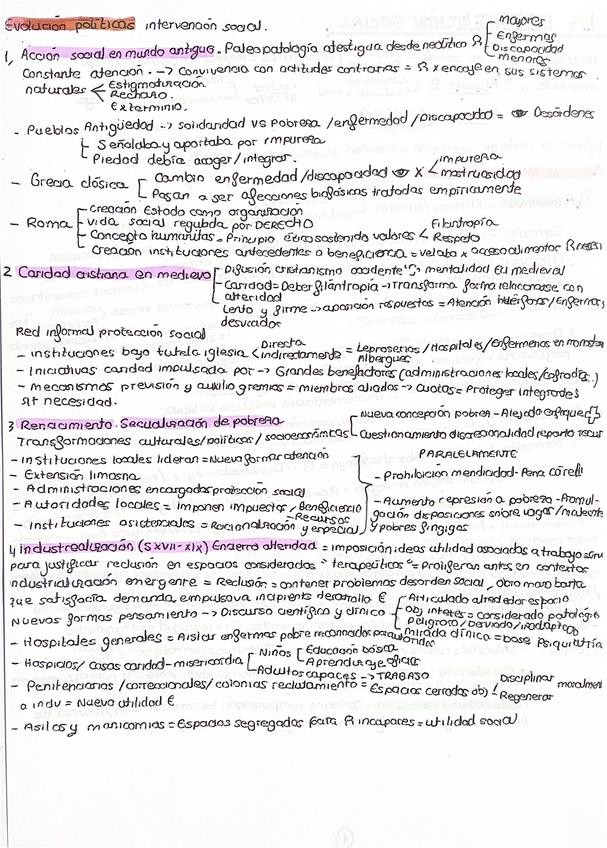 Evolución políticas intervención social.
1, Acción social en mundo antiguo. Paleopatología atestigua desde neolítico R { Mayores
Enfermos
Discapacidad
menores
Constante atención. → Convivencia con actitudes contrarias = R x encaje en sus sistemas
naturales < Estigmatización
Rechazo
Exterminio.
- Pueblos Antigüedad → solidaridad vs Pobreza / enfermedad / Discapacidad = Desórdenes
Señalaba y apartaba por impureza
Piedad debía acoger / integrar.
- Grecia clásica [ Cambio enfermedad / discapacidad X < impureza
monstruosidad
Pasan a ser afecciones biofísicas tratadas empíricamente
- Roma [ creación Estado como organización
vida social regulada por DERECHO
Concepto humanitas = Principio ético sostenido valores < Filantropía
Respeto
Creación instituciones antecedentes a beneficencia = velaba x acceso alimentar R
2 Caridad cristiana en medievo [ Difusión cristianismo occidente mentalidad Ed medieval
Caridad = Deber filantropía → Transforma forma relacionarse con
alteridad
Lento y firme → aparición respuestas = Atención huérfanos / Enfermos /
desviados
Red informal protección social
- instituciones bajo tutela iglesia < Directa
indirectamente = Leproserías / Hospitales / Enfermerías en monasterios
Albergues
- Iniciativas caridad impulsada por → Grandes benefactores (administraciones locales / cofradías.)
- mecanismos previsión y auxilio gremios = miembros aliados → Cuotas = Proteger integrantes
sit necesidad.
3 Renacimiento. Secualización de pobreza [ Nueva concepción pobres - Alejado enfoque
Transformaciones culturales / políticas / socioeconómicas Cuestionamiento discrecionalidad reparto recur
- Instituciones locales lideran = Nueva formar atención
- Extensión limosna
- Administraciones encargadas protección social
- Autoridades locales = imponen impuestos / Beneficiencia
- Recursos
- Instituciones asistenciales = Racionalización y especial
PARALELAMENTE
- Prohibición mendicidad - Pena cárcel
- Aumento represión a pobreza - Promul-
gación disposiciones sobre vagos / maleante
y pobres fingidos
4 industrialización (S XVII - XIX) Encierro alteridad = imposición ideas utilidad asociadas a trabajo
para justificar reclusión en espacios considerados "terapeuticos" = Proliferan antes en contextos
industrialización emergente = Reclusión = contener problemas desorden social, obra mano barata
que satisfacía demanda, empulsava incipiente desarrollo € [ Articulado alrededor espacio
Nuevas formas pensamiento → Discurso científico y clínico Obj interés = considerado patológico
Peligroso / Desviado / inadaptado
Mirada clínica = base Psiquiatría
- Hospitales generales = Aislar enfermos pobre reconocidos por autoridades
- Hospicios / casas caridad - misericordia [ Niños [ Educación básica
Aprendizaje oficios
Adultos capaces → TRABAJO
- Penitenciarias / correccionales / colonias reclutamiento = Espacios cerrados obj < Disciplinar
Regenerar moralment
a indv = Nueva utilidad €
- Asilos y manicomios = Espacios segregados para R incapaces = utilidad social